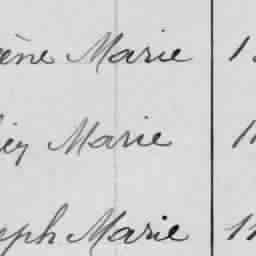 ène Marie 1
Marie 1
eph Marie 1